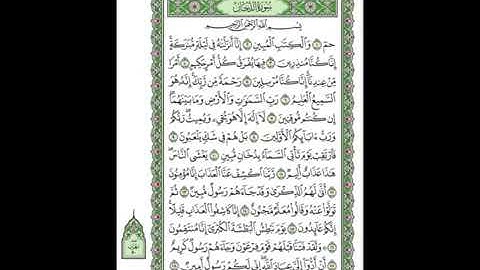 سورة الدخان
بسم الله الرحمن الرحيم
حم ١ والكتب المبين ٢ إنا أنزلنه في ليلة مبركة
إنا كنا منذرين ٣ فيها يفرق كل أمر حكيم ٤ أمرا
من عندنا إنا كنا مرسلين ٥ رحمة من ربك إنه هو
السميع العليم ٦ رب السموت والأرض وما بينهما
إن كنتم موقنين ٧ لا إله إلا هو يحي ويميت ربكم
ورب ءابائكم الأولين ٨ بل هم في شك يلعبون ٩
فارتقب يوم تأتي السماء بدخان مبين ١٠ يغشى الناس
هذا عذاب أليم ١١ ربنا اكشف عنا العذاب إنا مؤمنون
١٢ أنى لهم الذكرى وقد جاءهم رسول مبين ١٣ ثم
تولوا عنه وقالوا معلم مجنون ١٤ إنا كاشفوا العذاب قليلا
إنكم عائدون ١٥ يوم نبطش البطشة الكبرى إنا منتقمون
١٦ ولقد فتنا قبلهم قوم فرعون وجاءهم رسول كريم
١٧ أن أدوا إلي عباد الله إني لكم رسول أمين ١٨